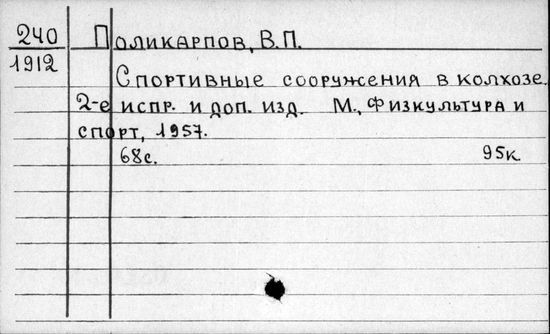 240 Поликарпов, В.П.
1912
Спортивные сооружения в колхозе.
2-е испр. и доп. изд. М., Физкультура и
спорт, 1957.
68с. 95к